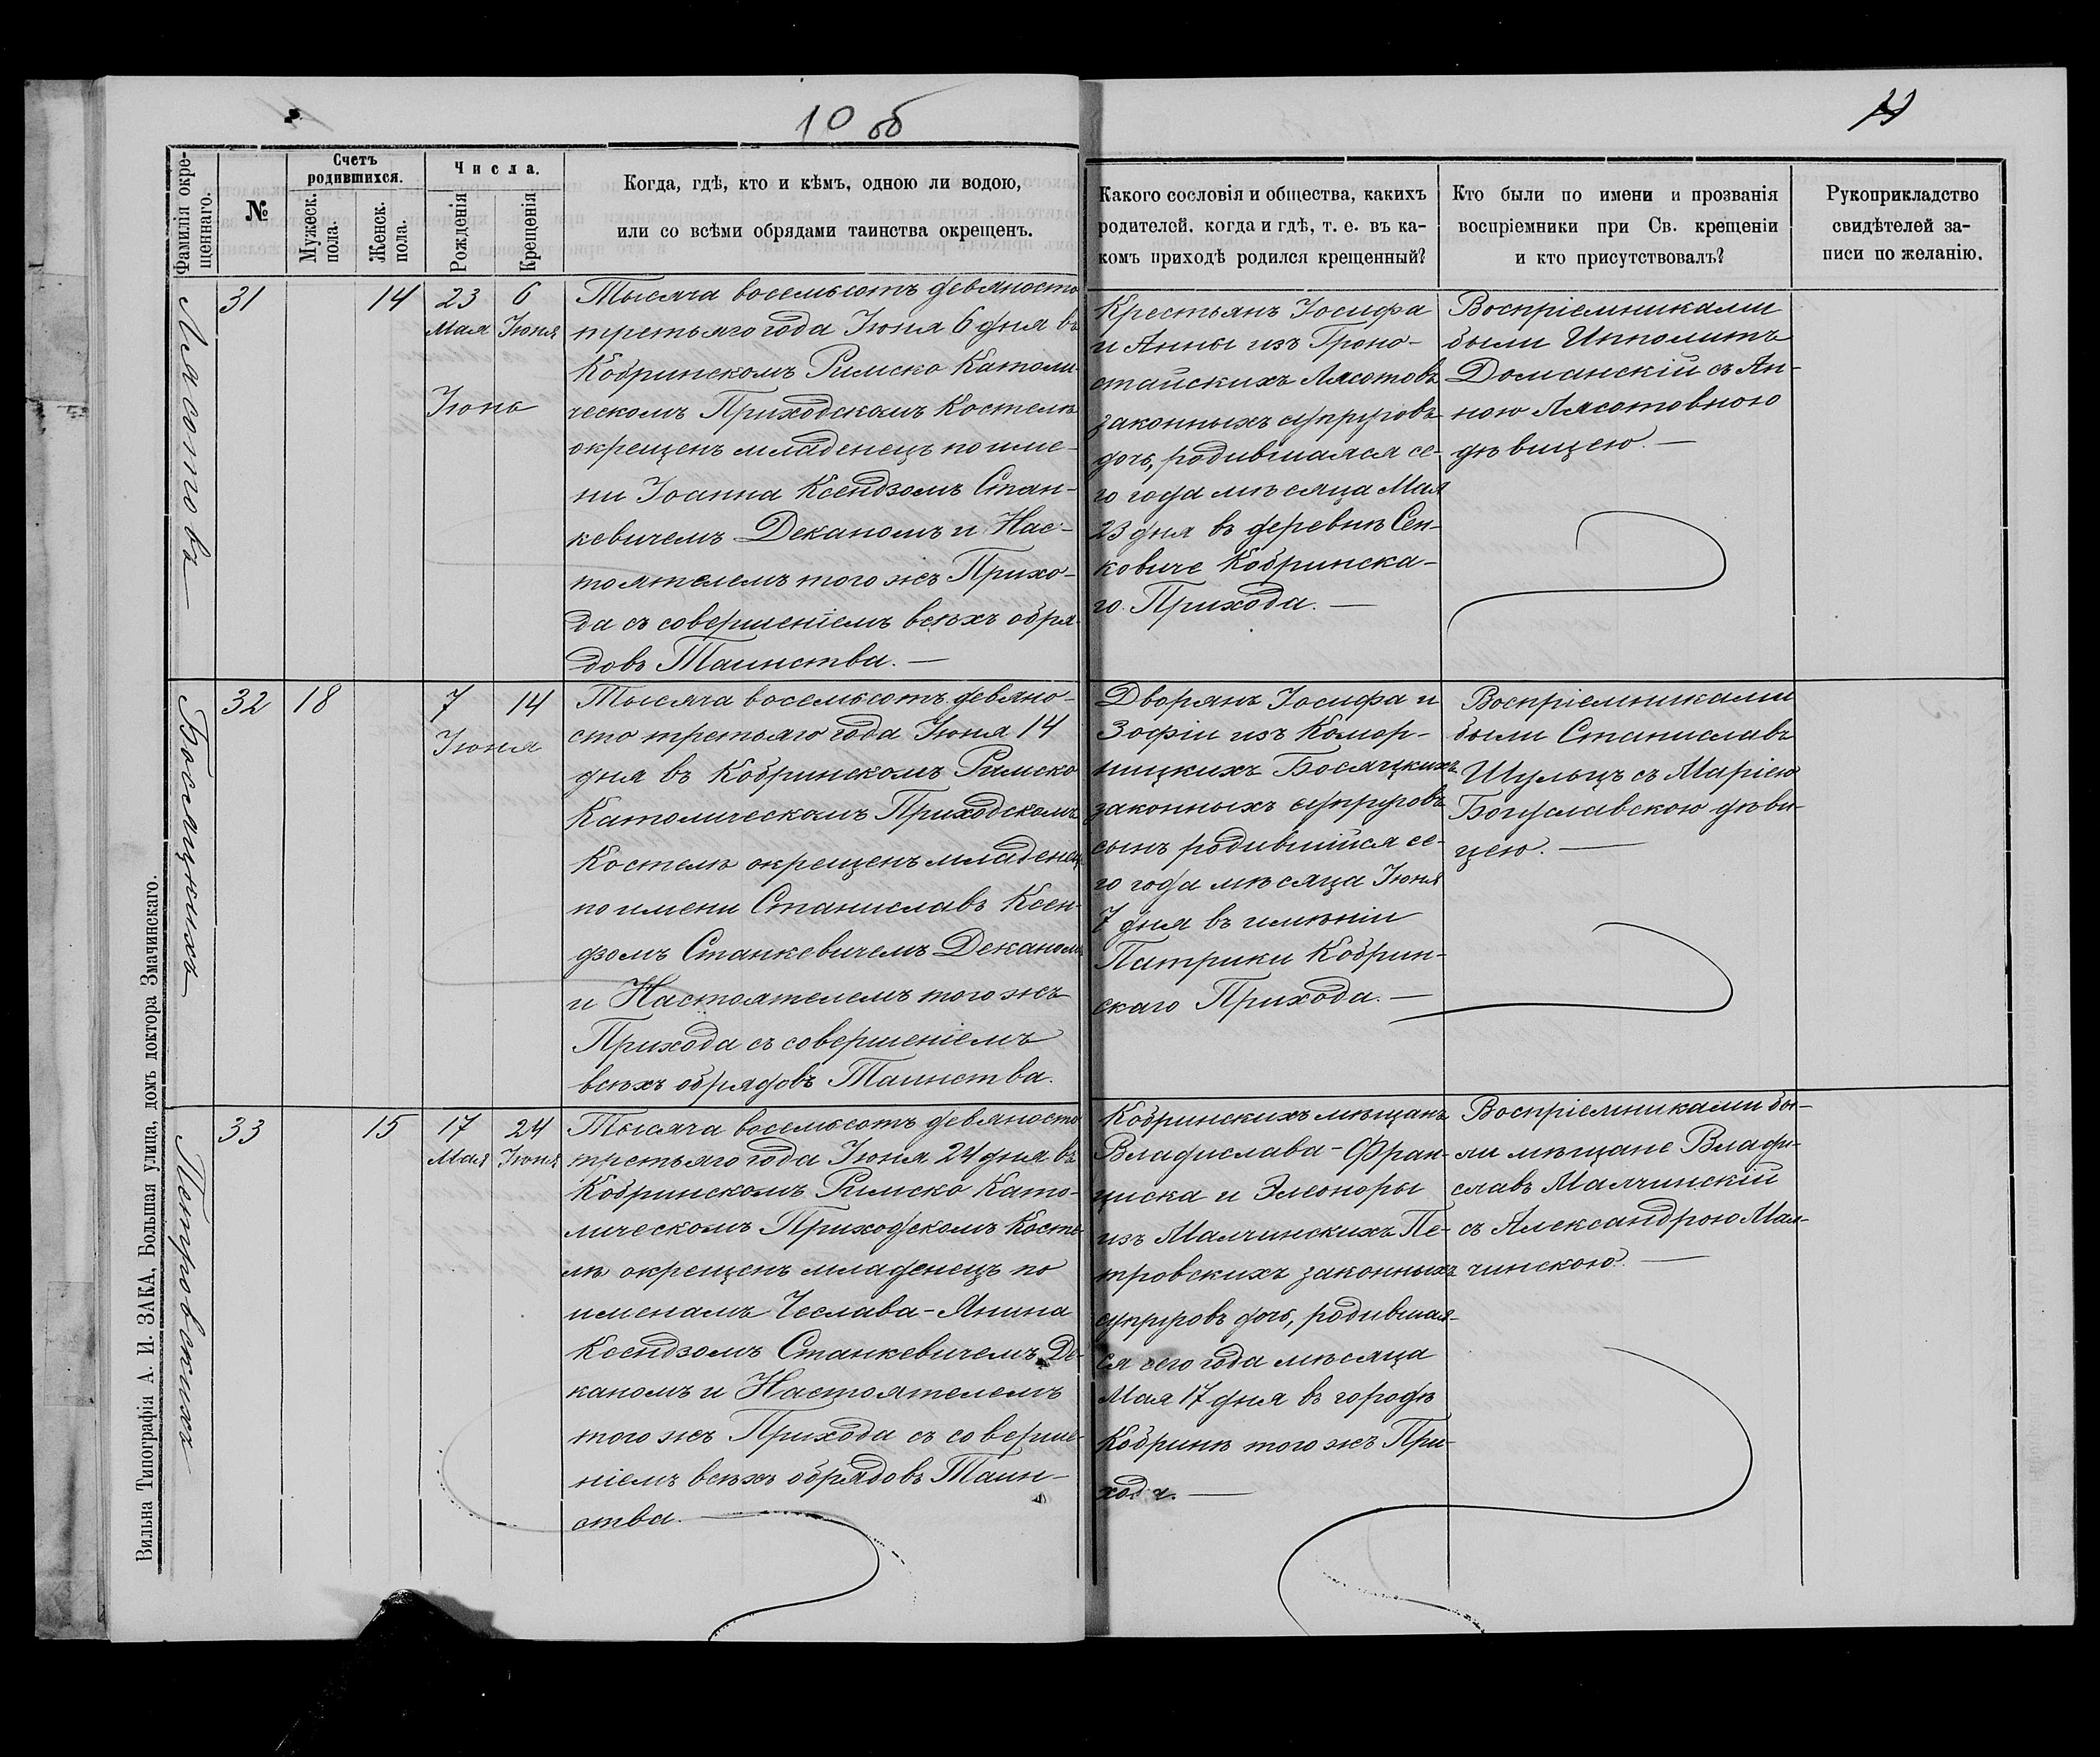 10 об
11
Фамилія окре-
щеннаго.
№
Счетъ
родившихся.
Мужеск.
пола.
Женск.
пола.
Числа.
Рожденія
Крещенія
Когда, гдѣ, кто и кѣмъ, одною ли водою,
или со всѣми обрядами таинства окрещенъ.
Какого сословія и общества, какихъ
родителей. когда и гдѣ, т. е. въ ка-
комъ приходѣ родился крещенный?
Кто были по имени и прозванія
воспріемники при Св. крещеніи
и кто присутствовалъ?
Рукоприкладство
свидѣтелей за-
писи по желанію.
Лясотовъ
31
14
23
Мая
6
Іюня
Іюнь
Тысяча восемьсотъ девяносто
третьяго года Іюня 6 дня въ
Кобринскомъ Римско Католи-
ческомъ Приходскомъ Костелѣ
окрещенъ младенецъ по име-
ни Іоанна Ксендзомъ Стан-
кевичемъ Деканомъ и Нас-
тоятелемъ того жъ Прихо-
да съ совершеніемъ всѣхъ обря-
довъ Таинства.—
Крестьянъ Іосифа
и Анны изъ Гроно-
стайскихъ Лясотовъ
законныхъ супруговъ
дочь, родившаяся се-
го года мѣсяца Мая
23 дня въ деревнѣ Сен-
ковиче Кобринска-
го Прихода.—
Воспріемниками
были Ипполитъ
Доманскій съ Ан-
ною Лясотовною
дѣвицею.—
Босяцкихъ
32
18
7
14
Іюня
Тысяча восемьсотъ девяно-
сто третьяго года Іюня 14
дня въ Кобринскомъ Римско
Католическомъ Приходскомъ
Костелѣ окрещенъ младенецъ
по имени Станиславъ Ксен-
дзомъ Станкевичемъ Деканомъ
и Настоятелемъ того жъ
Прихода съ совершеніемъ
всѣхъ обрядовъ Таинства.
Дворянъ Іосифа и
Зофіи изъ Комор-
ницкихъ Босяцкихъ
законныхъ супруговъ
сынъ родившійся се-
го года мѣсяца Іюня
7 дня въ имѣніи
Патрики Кобрин-
скаго Прихода.—
Воспріемниками
были Станиславъ
Шульцъ съ Маріею
Богуславскою дѣви-
цею.—
Петровскихъ
33
15
17
Мая
24
Іюня
Тысяча восемьсотъ девяносто
третьяго года Іюня 24 дня въ
Кобринскомъ Римско Като-
лическомъ Приходскомъ Косте-
лѣ окрещенъ младенецъ по
именамъ Чеслава-Янина
Ксендзомъ Станкевичемъ Де-
каномъ и Настоятелемъ
того жъ Прихода съ соверше-
ніемъ всѣхъ обрядовъ Таин-
ства.—
Кобринскихъ мѣщанъ
Владислава-Фран-
циска и Элеоноры
изъ Малчинскихъ Пе-
тровскихъ законныхъ
супруговъ дочь, родившая-
ся сего года мѣсяца
Мая 17 дня въ городѣ
Кобринѣ того жъ При-
хода.—
Воспріемниками бы-
ли мѣщане Влади-
славъ Малчинскій
съ Александрою Мал-
чинскою.—
Вильна Типографія А. И. ЗАКА, Большая улица, домъ доктора Змачинскаго.